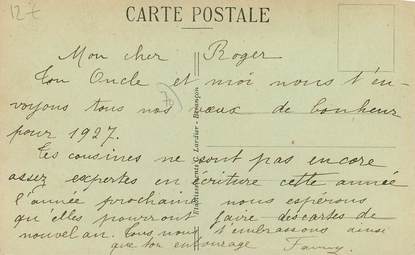 12€
CARTE POSTALE
Mon cher Roger
Ton Oncle et moi nous t'en-
voyons tous nos vœux de bonheur
pour 1927.
Tes cousines ne sont pas encore
assez expertes en écriture cette année
l'année prochaine nous espérons
qu'elles pourront faire des cartes de
nouvel an. Tous nous t'embrassons ainsi
que ton entourage Fanny
Etablissements C. Lardier - Besançon